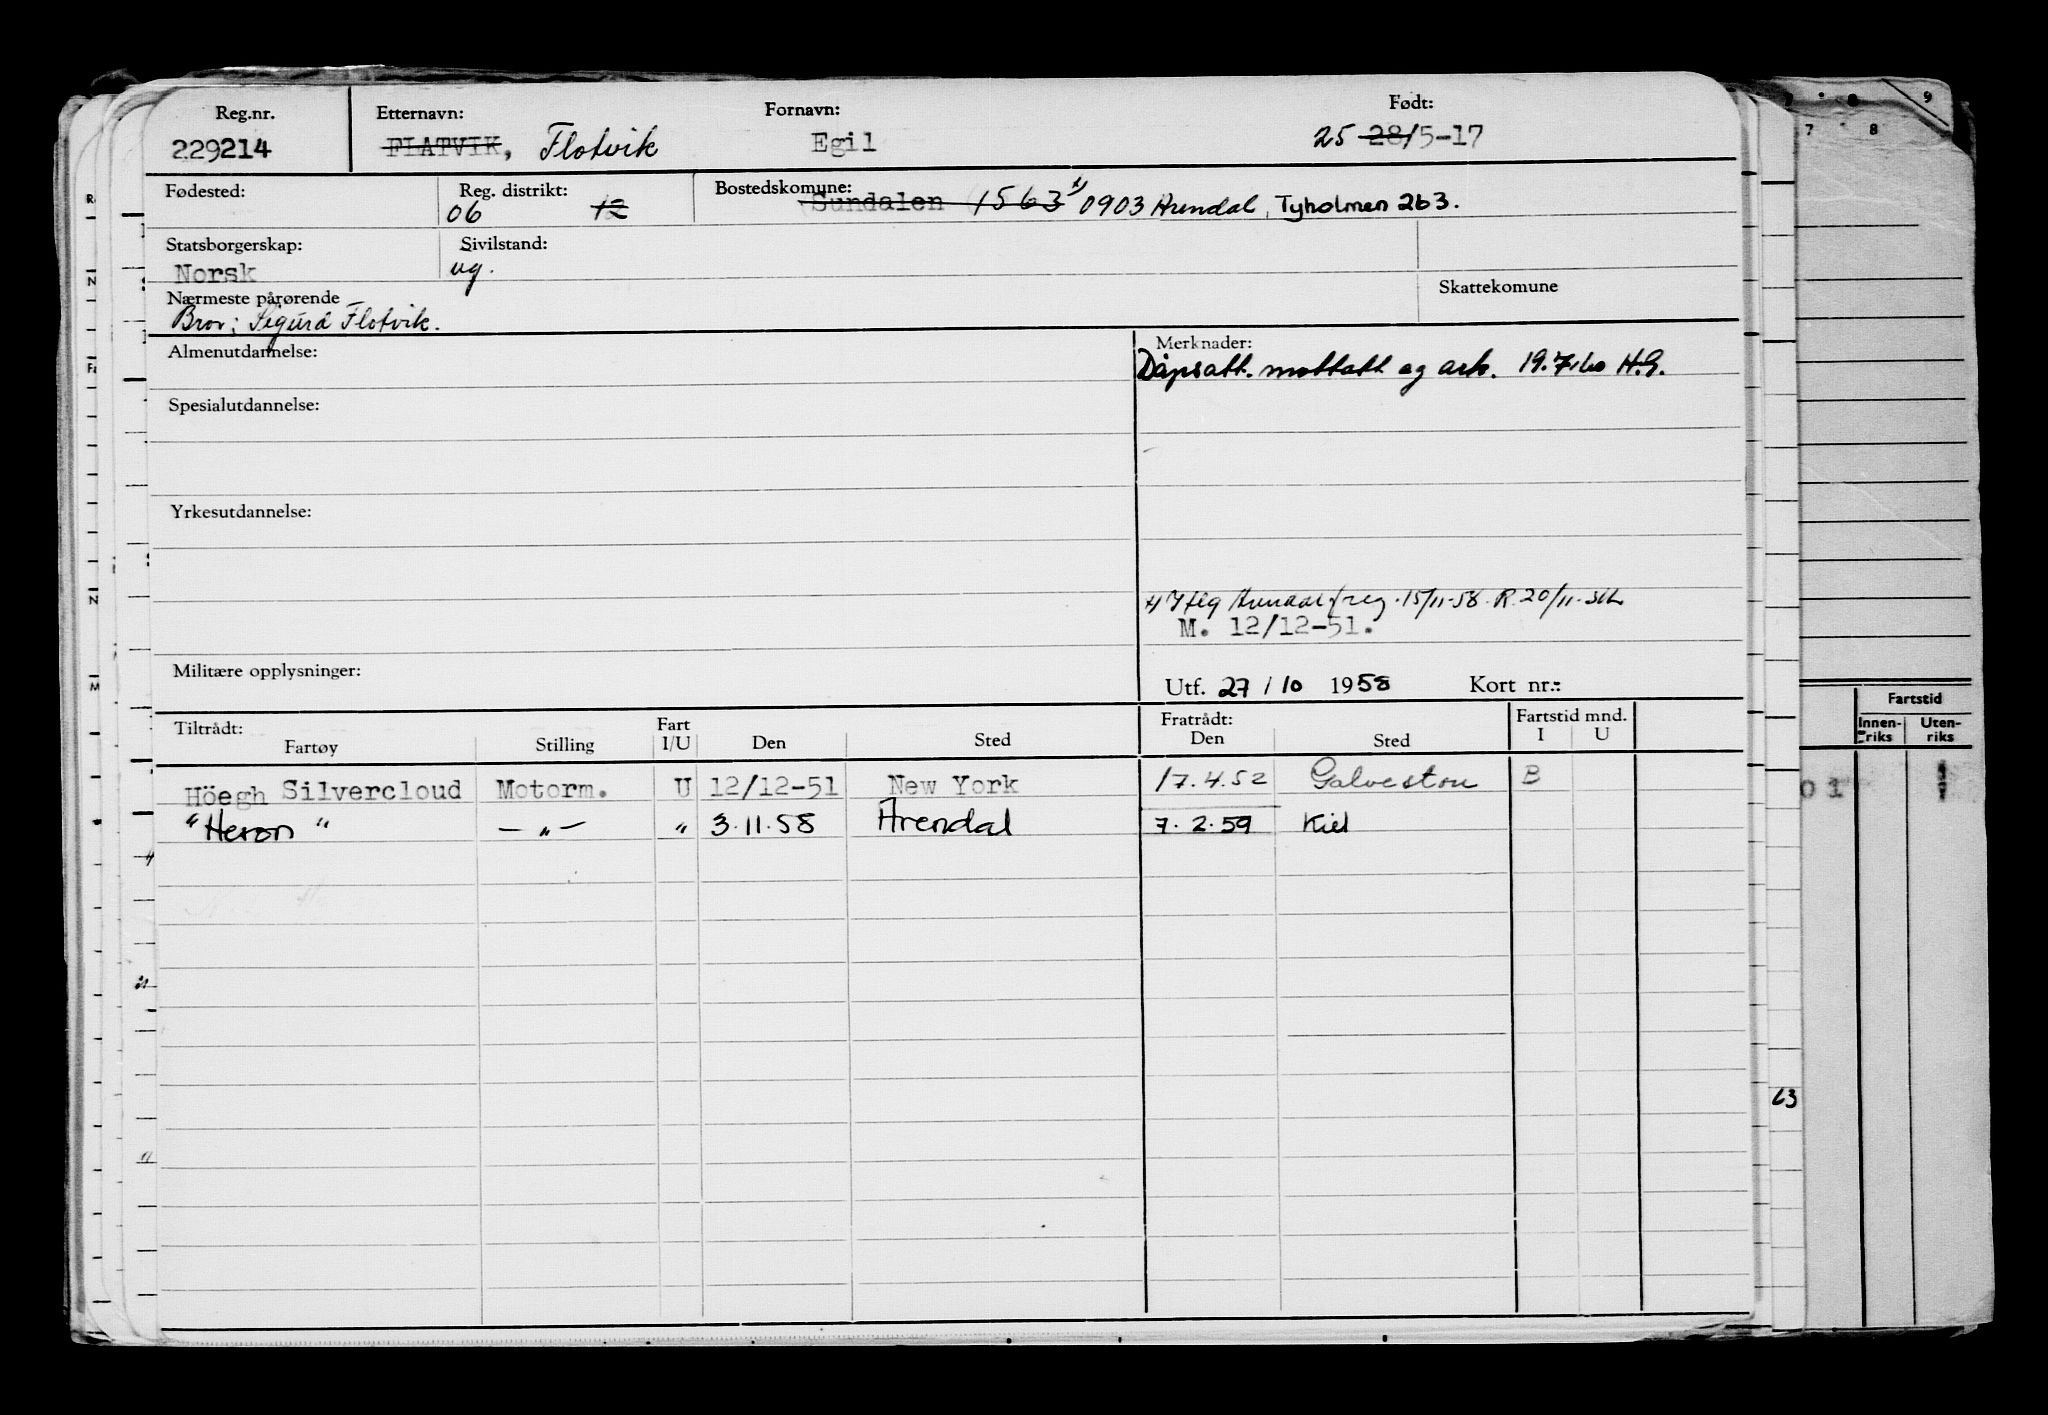 Reg.nr. Etternavn: Fornavn: Født:
229214 FLATVIK, Flotvik Egil 25 28/5-17
Fødested: Reg. distrikt: Bostedskomune:
06 12 Sundalen 1563 x) 0903 Arendal, Tyholmen 2b3.
Statsborgerskap: Sivilstand:
Norsk ug.
Nærmeste pårørende Skattekomune
Bror; Sigurd Flotvik.
Almenutdannelse: Merknader:
Dåpsatt. mottatt og ark. 19.7.60 H.G.
Spesialutdannelse:
Yrkesutdannelse:
x) Iflg Arendal f.reg. 15/11-58. R. 20/11.
M. 12/12-51.
Militære opplysninger:
Utf. 27/10 1958 Kort nr.:
Tiltrådt: Fartøy Stilling Fart I/U Den Sted Fratrådt: Den Sted Fartstid mnd. I U
Höegh Silvercloud Motorm. U 12/12-51 New York 17.4.52 Galveston B
"Heron" — " — " 3.11.58 Arendal 7.2.59 Kiel
9
7 8
Fartstid
Innenriks Utenriks
01
63